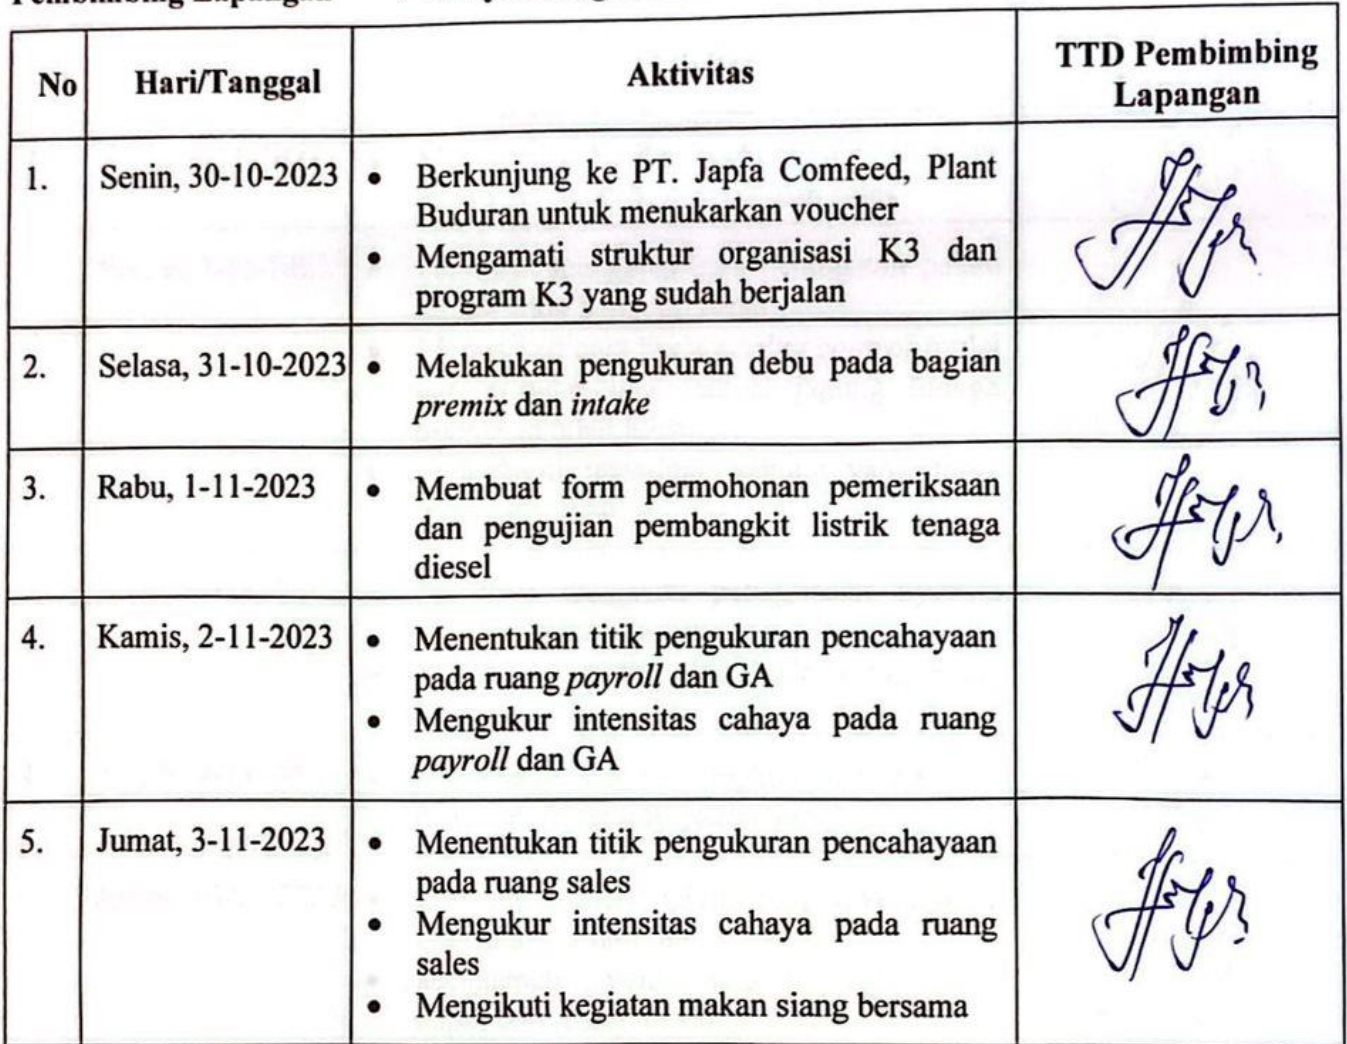 Pembimbing Lapangan
No Hari/Tanggal Aktivitas TTD Pembimbing
Lapangan
1. Senin, 30-10-2023 • Berkunjung ke PT. Japfa Comfeed, Plant
Buduran untuk menukarkan voucher
• Mengamati struktur organisasi K3 dan
program K3 yang sudah berjalan
2. Selasa, 31-10-2023 • Melakukan pengukuran debu pada bagian
premix dan intake
3. Rabu, 1-11-2023 • Membuat form permohonan pemeriksaan
dan pengujian pembangkit listrik tenaga
diesel
4. Kamis, 2-11-2023 • Menentukan titik pengukuran pencahayaan
pada ruang payroll dan GA
• Mengukur intensitas cahaya pada ruang
payroll dan GA
5. Jumat, 3-11-2023 • Menentukan titik pengukuran pencahayaan
pada ruang sales
• Mengukur intensitas cahaya pada ruang
sales
• Mengikuti kegiatan makan siang bersama